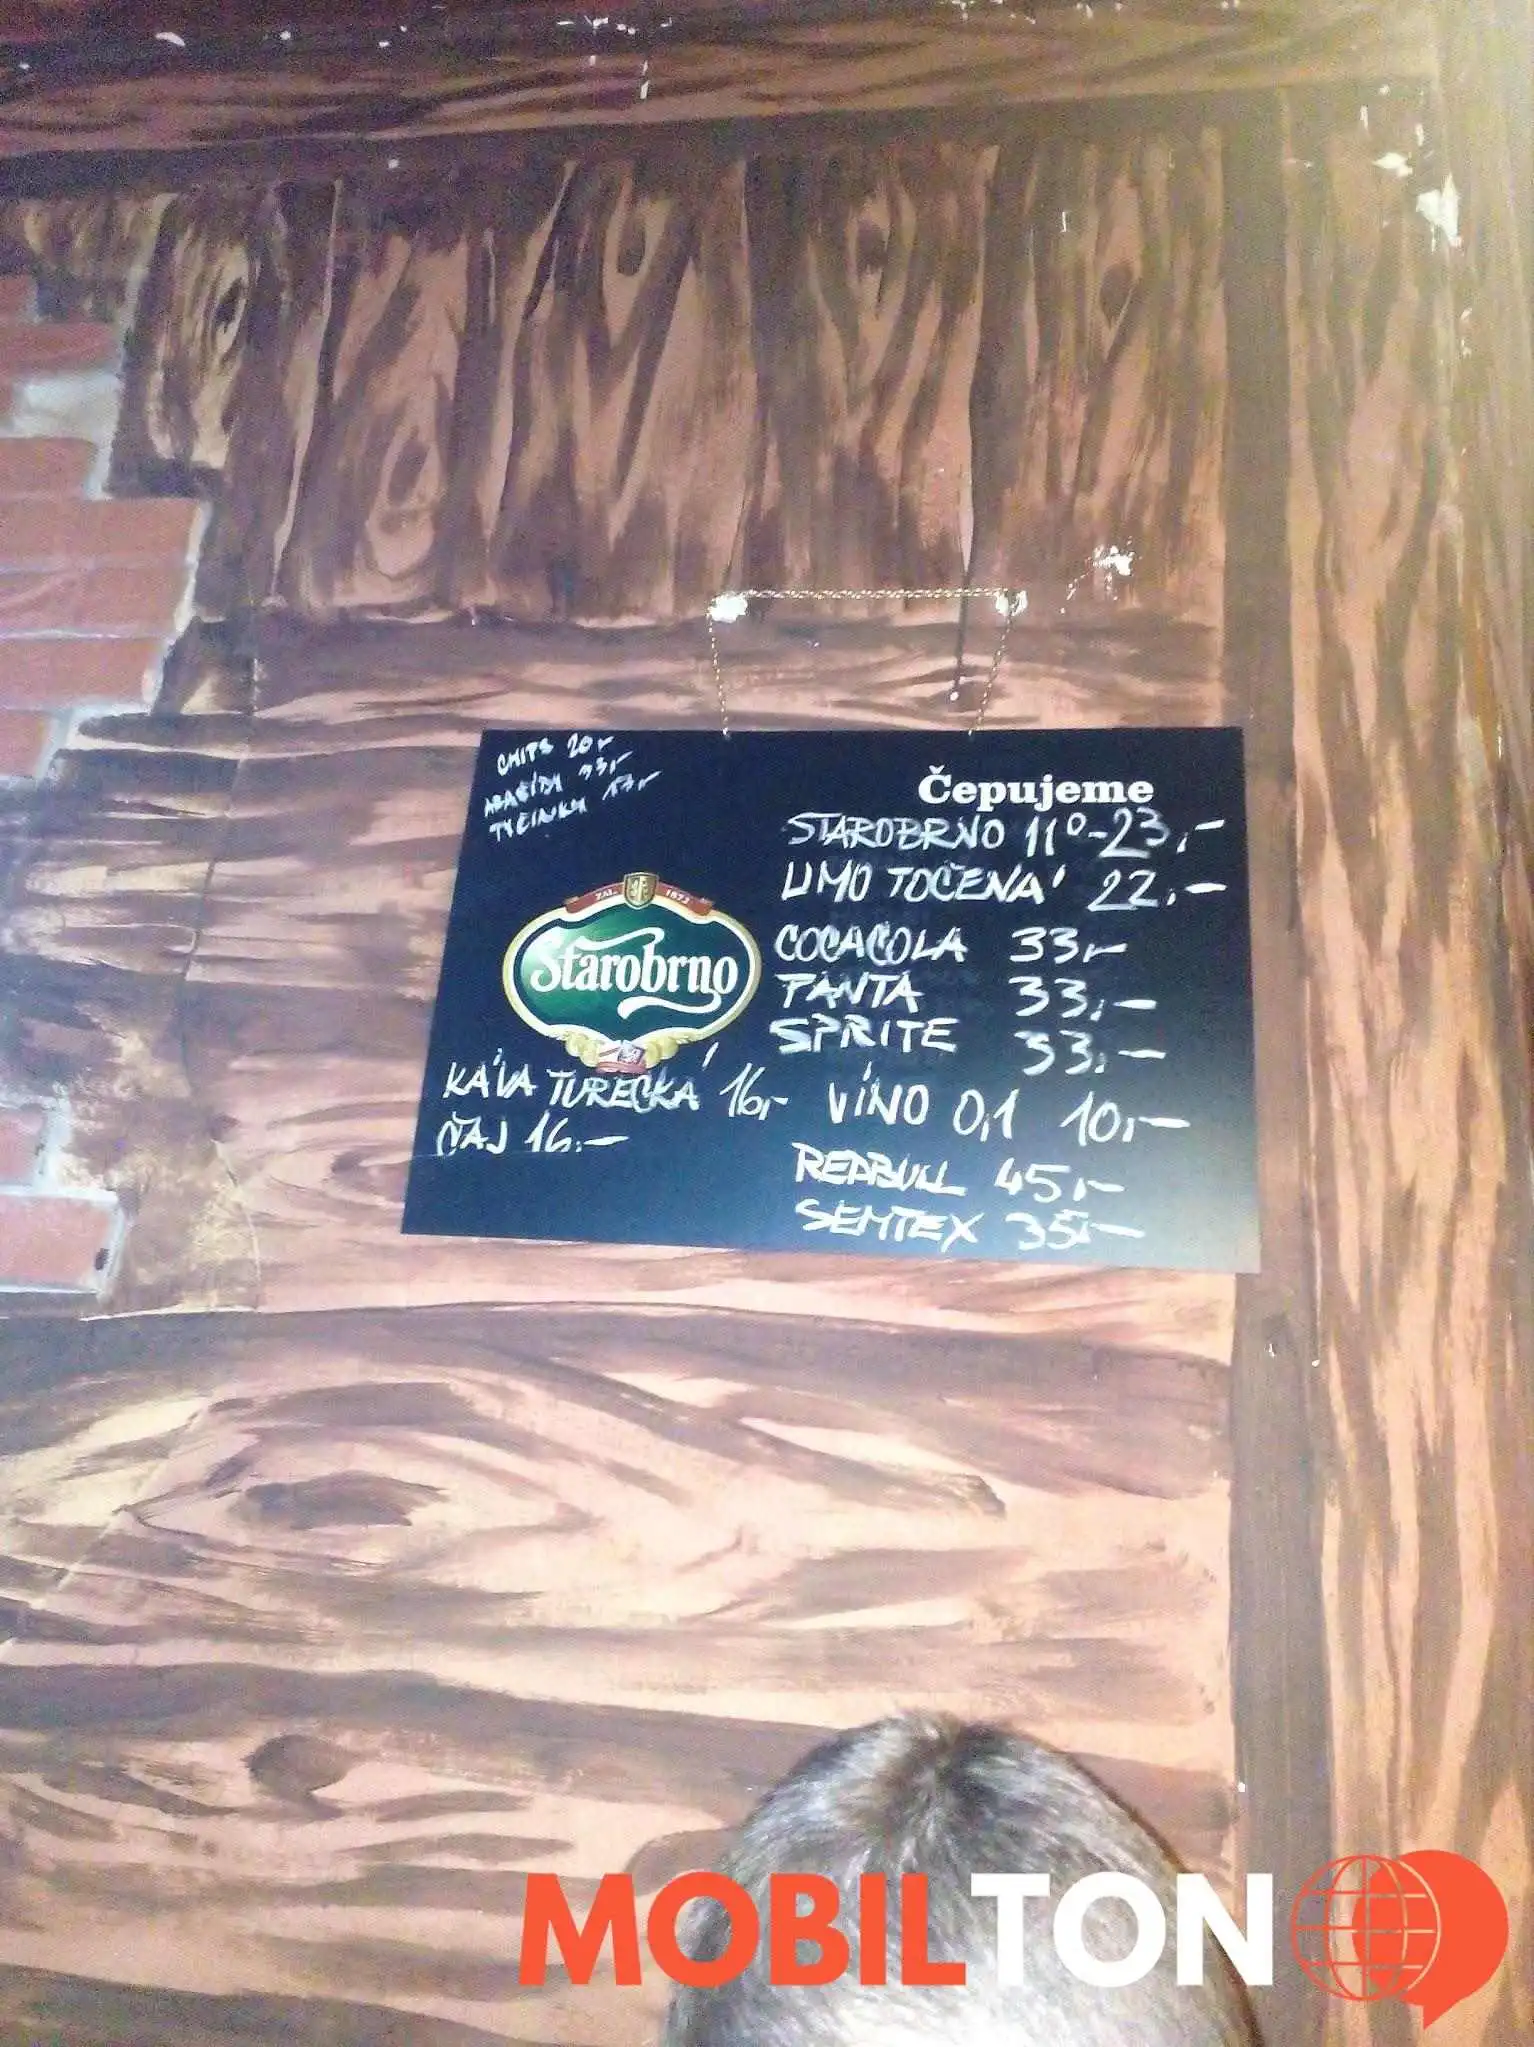 CHIPS 20,-
ARAŠÍDY 33,-
TYČINKY 17,-
Čepujeme
STAROBRNO 11° - 23,-
LIMO TOČENÁ 22,-
COCACOLA 33,-
FANTA 33,-
SPRITE 33,-
ZAL. 1872
Starobrno
KÁVA TURECKÁ 16,-
ČAJ 16,-
VÍNO 0,1 10,-
REDBULL 45,-
SEMTEX 35,-
MOBILTON